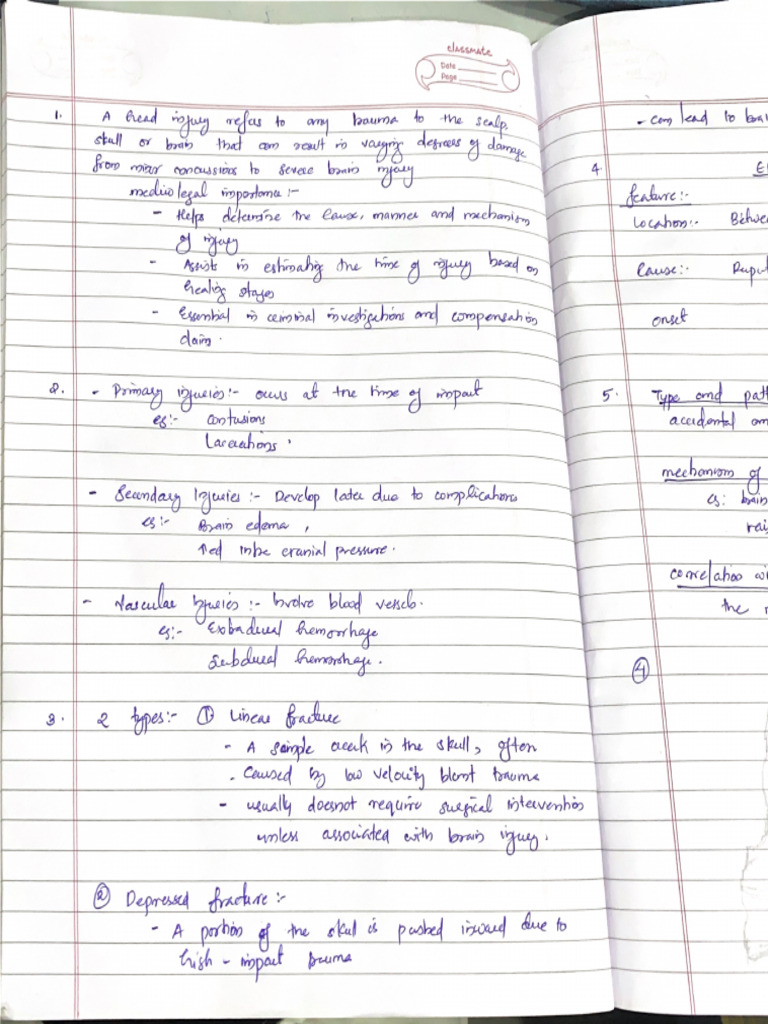 classmate
Date
Page
1. A head injury refers to any trauma to the scalp,
skull or brain that can result in varying degrees of damage
from minor concussions to severe brain injury
medico legal importance :-
- Helps determine the cause, manner and mechanism
of injury
- Assists in estimating the time of injury based on
healing stages
- Essential in criminal investigations and compensation
claim.
2. - Primary injuries :- occurs at the time of impact
eg :- contusions
Lacerations.
- Secondary Injuries :- Develop later due to complications
eg :- Brain edema,
↑ed cranial pressure.
- Vascular Injuries :- Involve blood vessels.
eg :- hemorrhage
Subdural hemorrhage.
3. 2 types :- ① Linear fracture
- A simple crack in the skull, often
- caused by low velocity blunt trauma
- usually doesnot require surgical intervention
unless associated with brain injury.
② Depressed fracture :-
- A portion of the skull is pushed inward due to
high - impact trauma
- can lead to brai
4.
feature :-
Location :- Betwe
Cause :- Rupt
onset
5. Type and pat
accidental an
mechanism of
eg: brain
rai
correlation wi
the
④